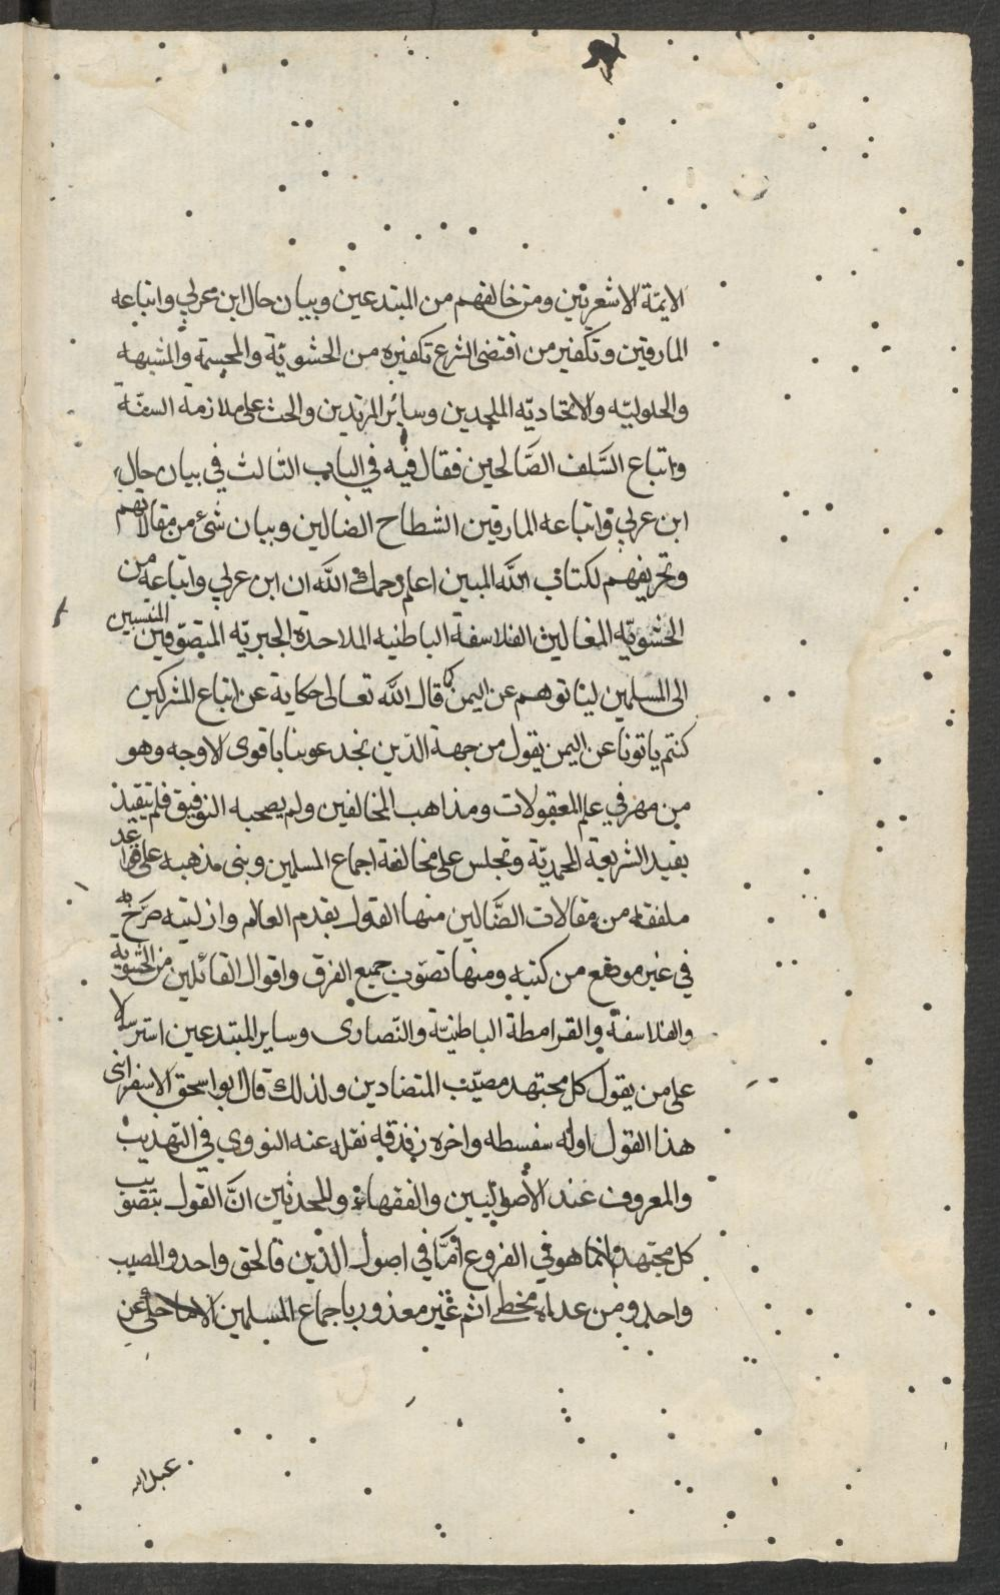 الايمّة الاشعريّين ومن خالفهم من المبتدعين وبيان حال ابن عربي واتباعه
المارقين وتكفير من اقتضى الشرع تكفيره من الحشويّة والمجسمة والمشبهه
والحلوليّه والاتحاديّه الملحدين وسائر المرتدين والحث على ملازمة السنّة
واتباع السَّلف الصَّالحين فقال فيه في الباب الثالث في بيان حال
ابن عربي واتباعه المارقين الشطاح الضالين وبيان شئ من مقالاتهم
وتحريفهم لكتاب الله المبين اعلم رحمك الله ان ابن عربي واتباعه من
الحشويّه المغالين الفلاسفة الباطنيه الملاحدة الجبريّه المتصوفين المنتسبين
الى المسلمين ليناتوهم عن اليمن كما قال الله تعالى حكاية عن اتباع المشركين
كنتم ياتونا عن اليمن يقول من جهة الدّين نجد عوننا باقوى الاوجه وهو
من مهر في علم المعقولات ومذاهب المخالفين ولم يصحبه التوفيق فلم يتقيذ
بقيد الشريعة المحمديّة وتجلس على مخالفة اجماع المسلمين وبنى مذهبه على قواعد
ملفقه من مقالات الضَّالين منها القول بقدم العالم وازليته صَرّح به
في غير موضع من كتبه ومنها تصويب جميع الفرق واقوال القائلين من الحشوية
والفلاسفة والقرامطة الباطنيّة والنّصارى وساير المبتدعين استرسالا
على من يقول كل مجتهد مصيّب المتضادين ولذلك قال ابو اسحق الاسفرائنى
هذا القول اوله سفسطه واخره زندقه نقله عنه النووي في التهذيب
والمعروف عند الأصوليين والفقهاء والمحدثين انّ القول بتصويب
كل مجتهد انما هو في الفروع امّا في اصول الدّين فالحق واحد والمصيب
واحد ومن عداه مخطى اثم غير معذور باجماع المسلمين الا ما حكى عن
عبد الله